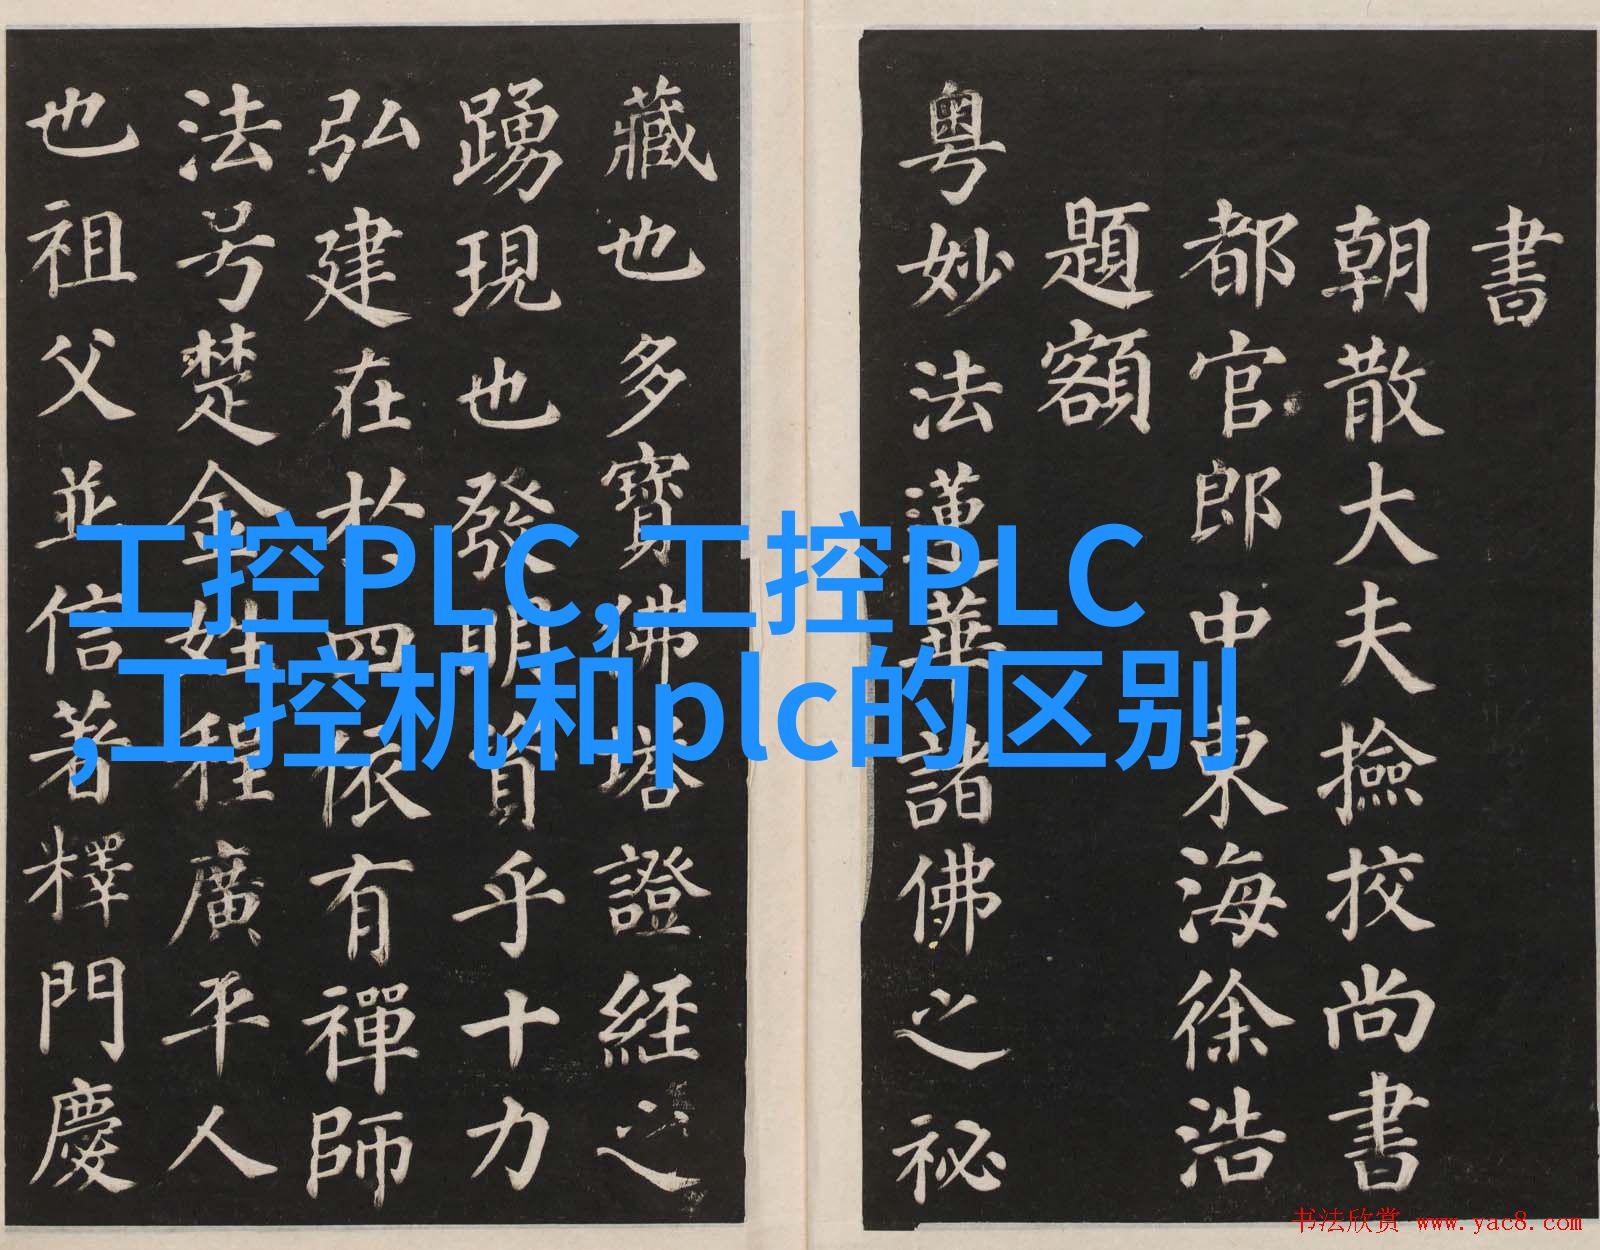 書
朝散大夫撿挍尚書
都官郎中東海徐浩
題額
粤妙法蓮華諸佛之秘
藏也多寶佛塔證經之
踴現也發明資乎十力
弘建在於四依有禪師
法号楚金姓程廣平人
也祖父並信著釋門慶
工控PLC,工控PLC
,工控机和plc的区别
书法欣赏 www.yac8.com